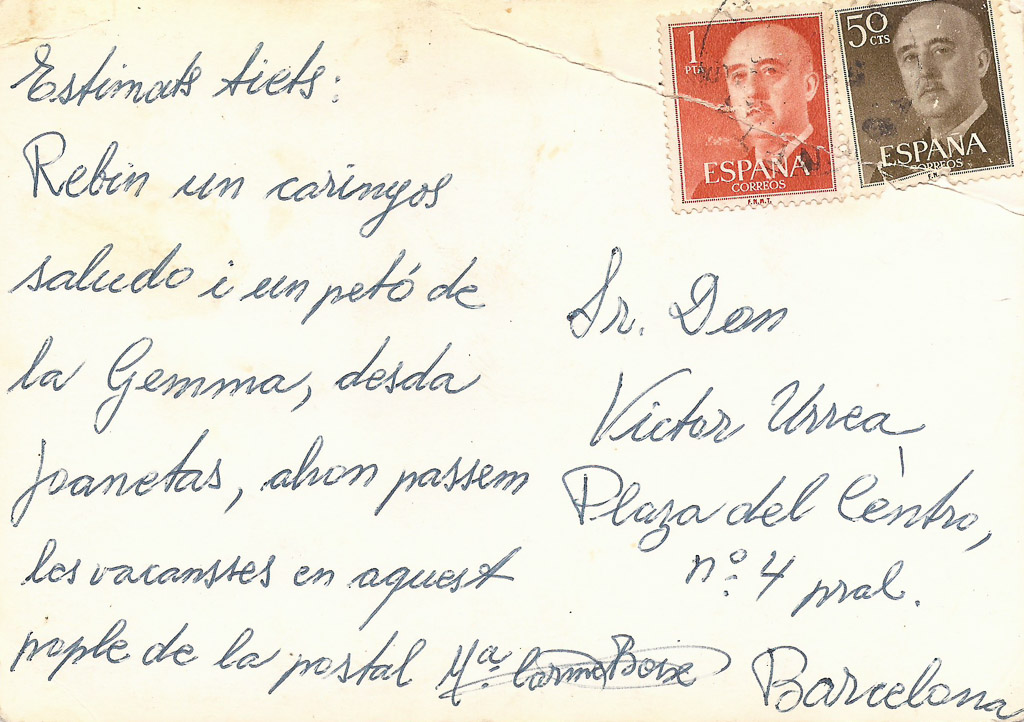 Estimats tiets:
Rebin un carinyos
saludo i un petó de
la Gemma, desda
Joanetas, ahon passem
les vacansses en aquest
pople de la postal Mª. Carme Boix
1
PTA
ESPAÑA
CORREOS
F.N.M.T.
50
CTS
ESPAÑA
CORREOS
Sr. Don
Victor Urrea
Plaza del Centro,
nº. 4 pral.
Barcelona